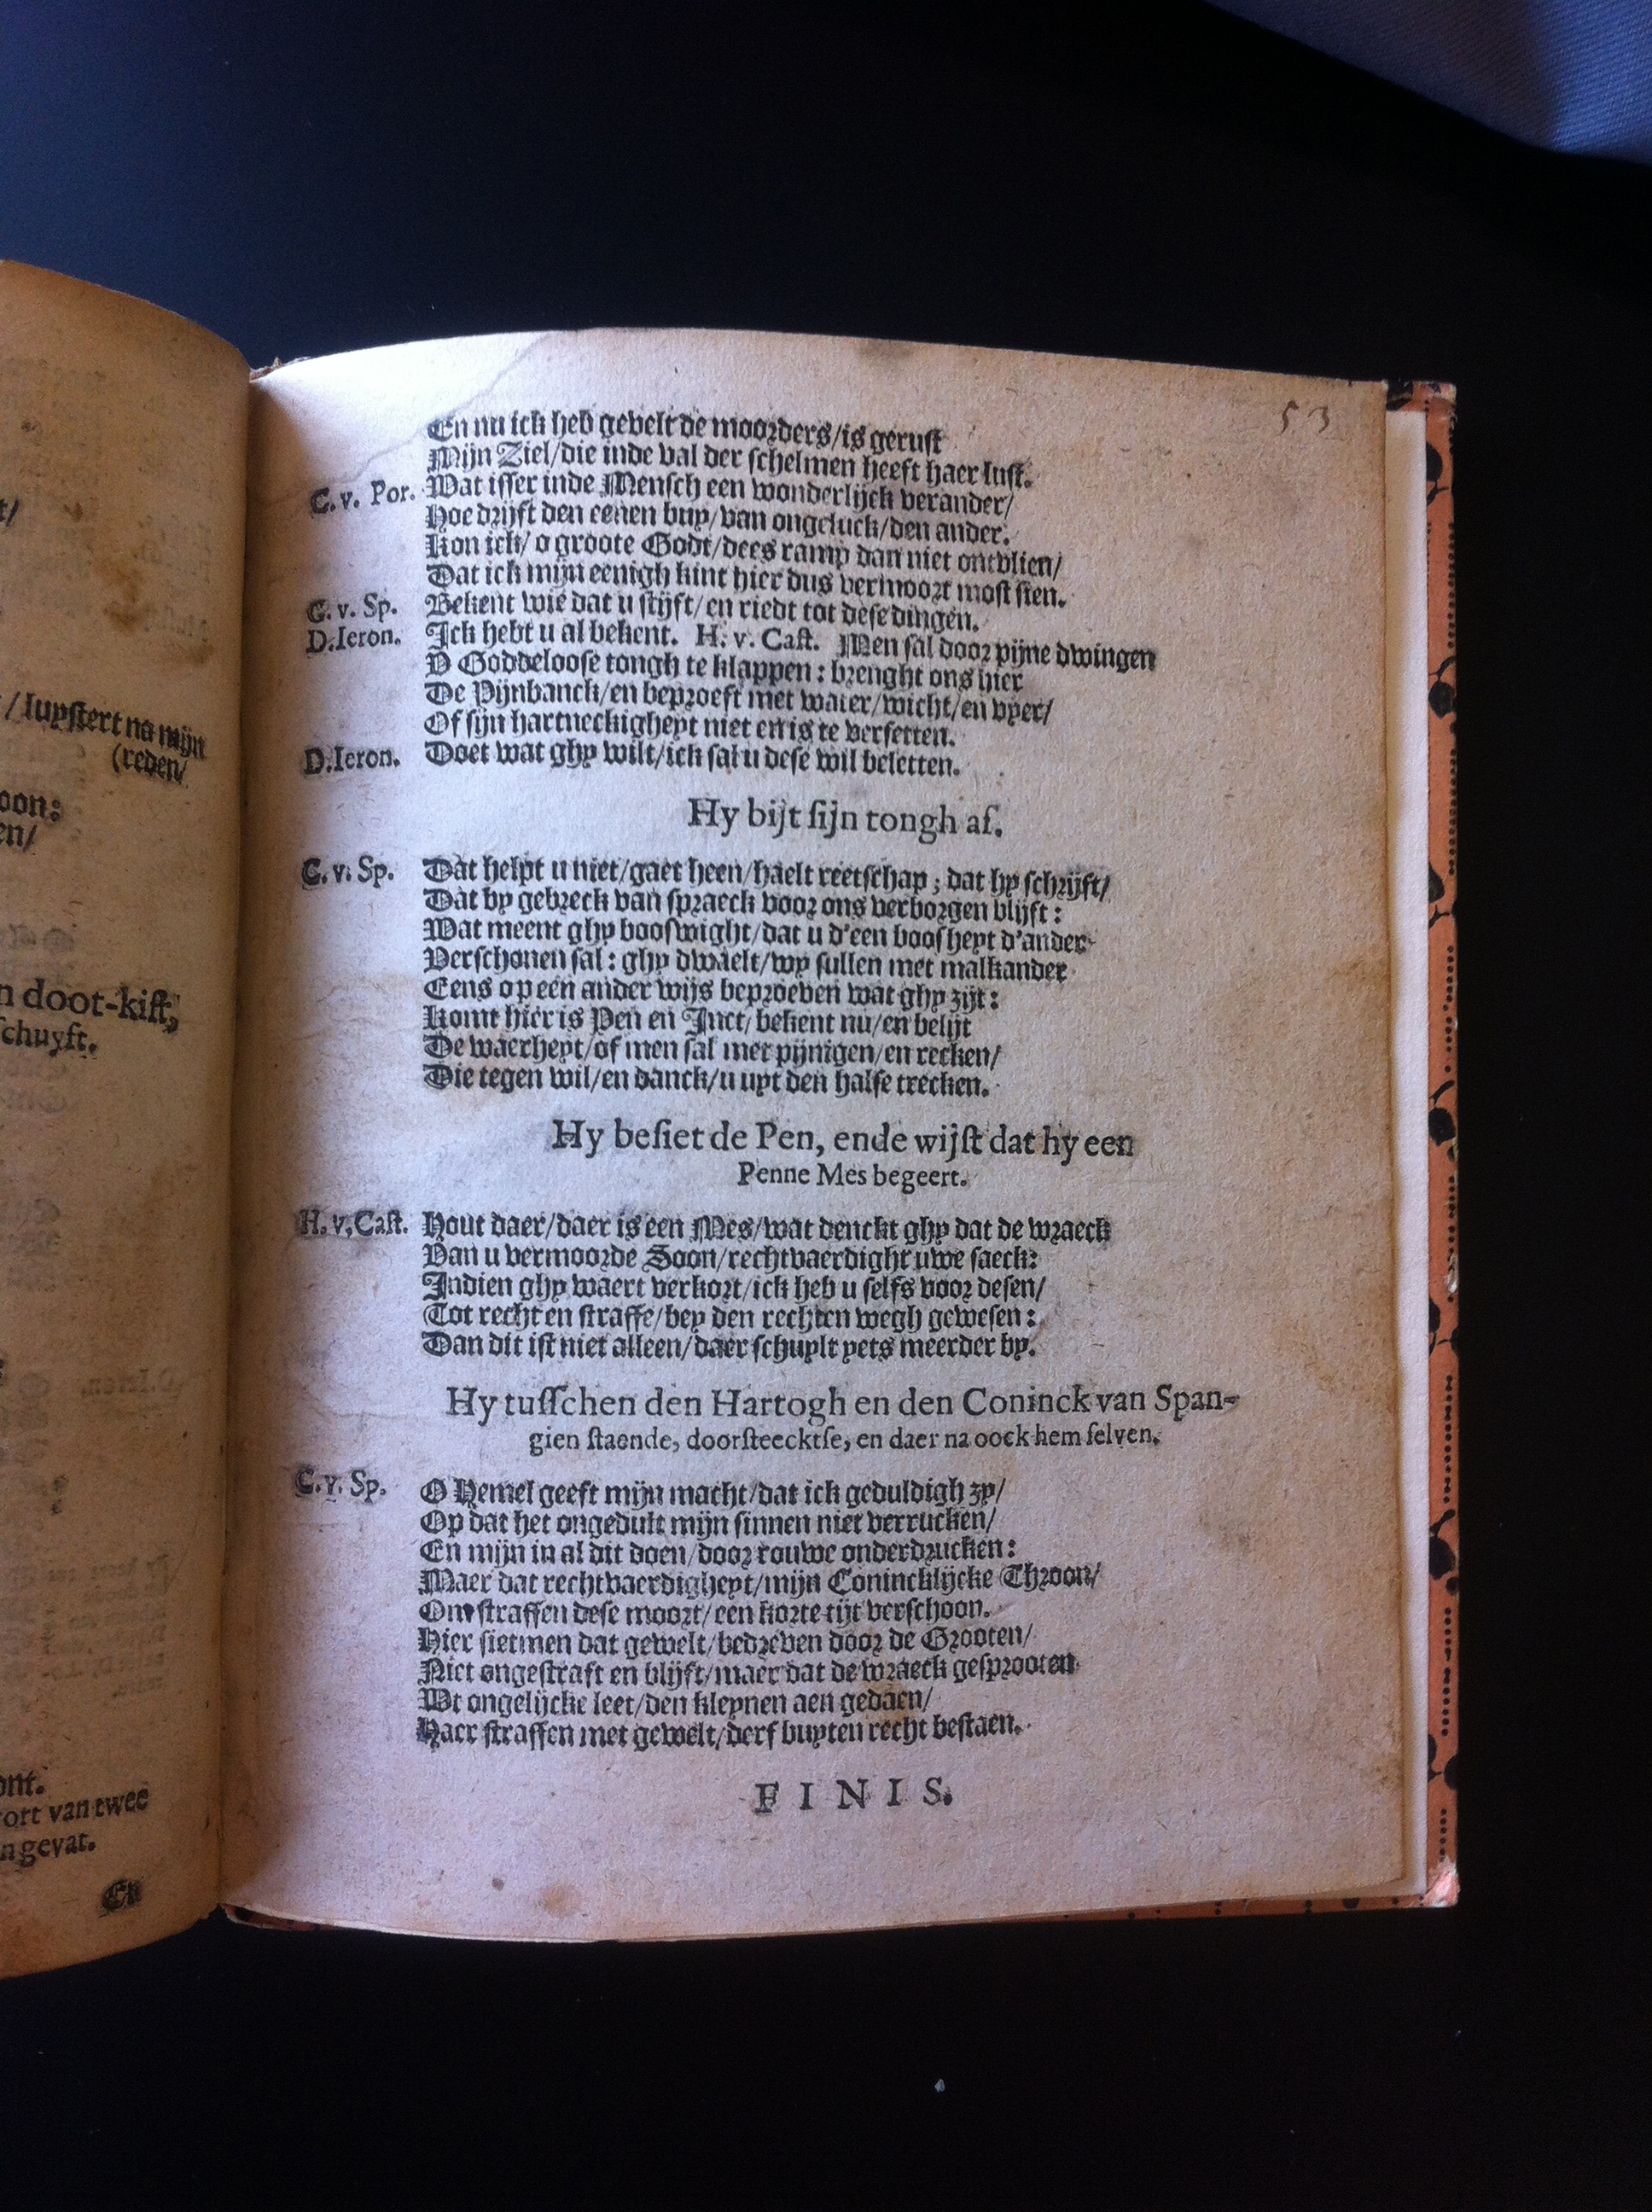 t/
/ luystert na mijn
(reden/
oon:
en/
n doot-kist,
schuyft.
ont.
ort van twee
n gevat.
En
53
En nu ick heb gevelt de moorders/is gerust
Mijn Ziel/die inde val der schelmen heeft haer lust.
C. v. Por. Wat isser inde Mensch een wonderlijck verander/
Hoe drijft den eenen buy/van ongeluck/den ander.
Kon ick/o groote Godt/dees ramp dan niet ontvlien/
Dat ick mijn eenigh kint hier dus vermoort most sien.
C. v. Sp. Bekent wie dat u stijft/en riedt tot dese dingen.
D.Ieron. Ick hebt u al bekent. H. v. Cast. Men sal door pijne dwingen
V Goddeloose tongh te klappen: brenght ons hier
De Pijnbanck/en beproeft met water/wicht/en vyer/
Of sijn hartneckigheyt niet en is te versetten.
D.Ieron. Doet wat ghy wilt/ick sal u dese wil beletten.
Hy bijt sijn tongh af.
C. v. Sp. Dat helpt u niet/gaet heen/haelt reetschap; dat hy schrijft/
Dat by gebreck van spraeck voor ons verborgen blijft:
Wat meent ghy booswight/dat u d'een boosheyt d'ander
Verschonen sal: ghy dwaelt/wy sullen met malkander
Eens op een ander wijs beproeven wat ghy zijt:
Komt hier is Pen en Inct/bekent nu/en belijt
De waerheyt/of men sal met pijnigen/en recken/
Die tegen wil/en danck/u uyt den halse trecken.
Hy besiet de Pen, ende wijst dat hy een
Penne Mes begeert.
H. v. Cast. Hout daer/daer is een Mes/wat denckt ghy dat de wraeck
Van u vermoorde Soon/rechtvaerdight uwe saeck:
Indien ghy waert verkort/ick heb u selfs voor desen/
Tot recht en straffe/bey den rechten wegh gewesen:
Dan dit ist niet alleen/daer schuylt yets meerder by.
Hy tusschen den Hartogh en den Coninck van Span-
gien staende, doorsteecktse, en daer na oock hem selven.
C. v. Sp. O Hemel geeft mijn macht/dat ick geduldigh zy/
Op dat het ongedult mijn sinnen niet verrucken/
En mijn in al dit doen/door rouwe onderdrucken:
Maer dat rechtvaerdigheyt/mijn Conincklijcke Throon/
Om straffen dese moort/een korte tijt verschoon.
Hier sietmen dat gewelt/bedreven door de Grooten/
Niet ongestraft en blijft/maer dat de wraeck gesprooten
Wt ongelijcke leet/den kleynen aen gedaen/
Haer straffen met gewelt/derf buyten recht bestaen.
FINIS.